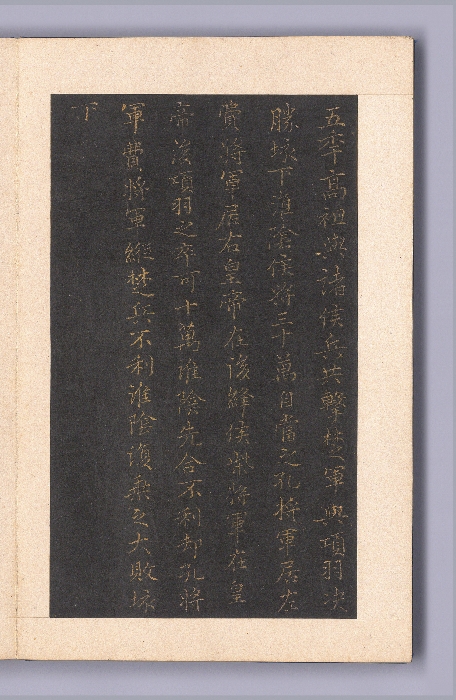 五年高祖與諸侯兵共擊楚軍與項羽決
勝垓下淮陰侯將三十萬自當之孔將軍居左
費將軍居右皇帝在後絳侯柴將軍在皇
帝後項羽之卒可十萬淮陰先合不利却孔將
軍費將軍縱楚兵不利淮陰復乘之大敗垓
下